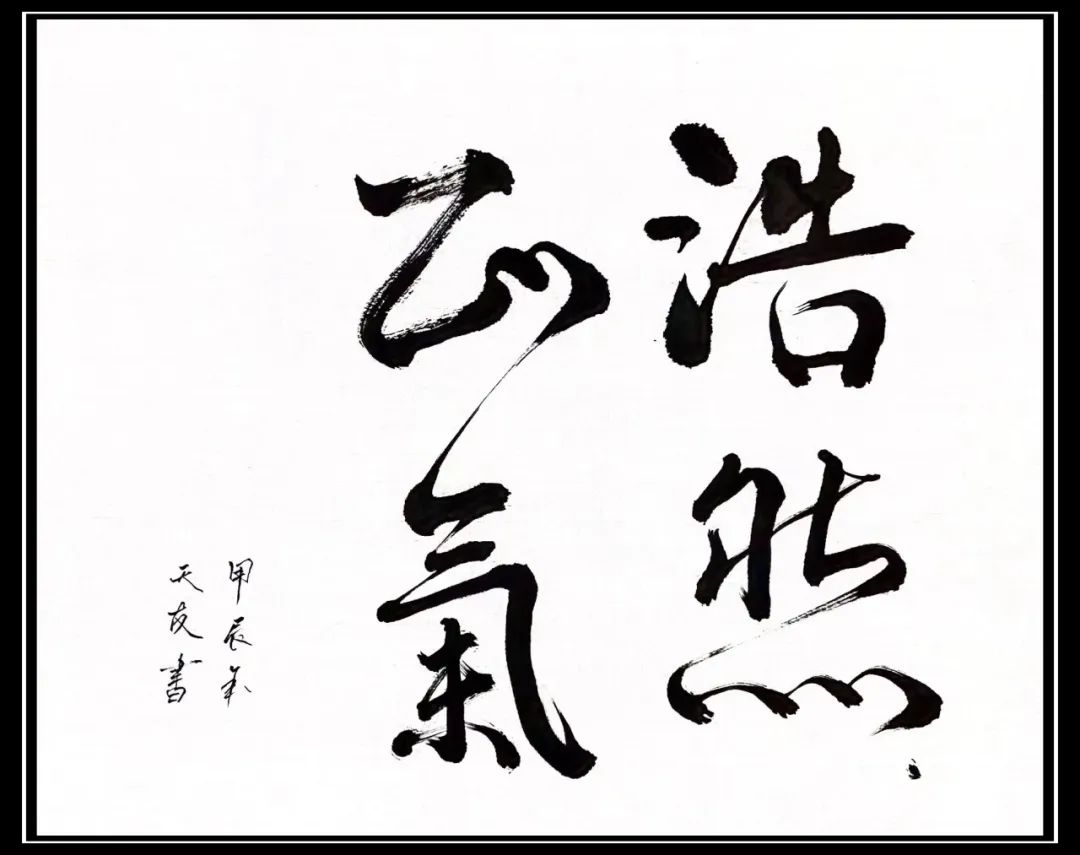 浩然
正氣
甲辰年
天友書